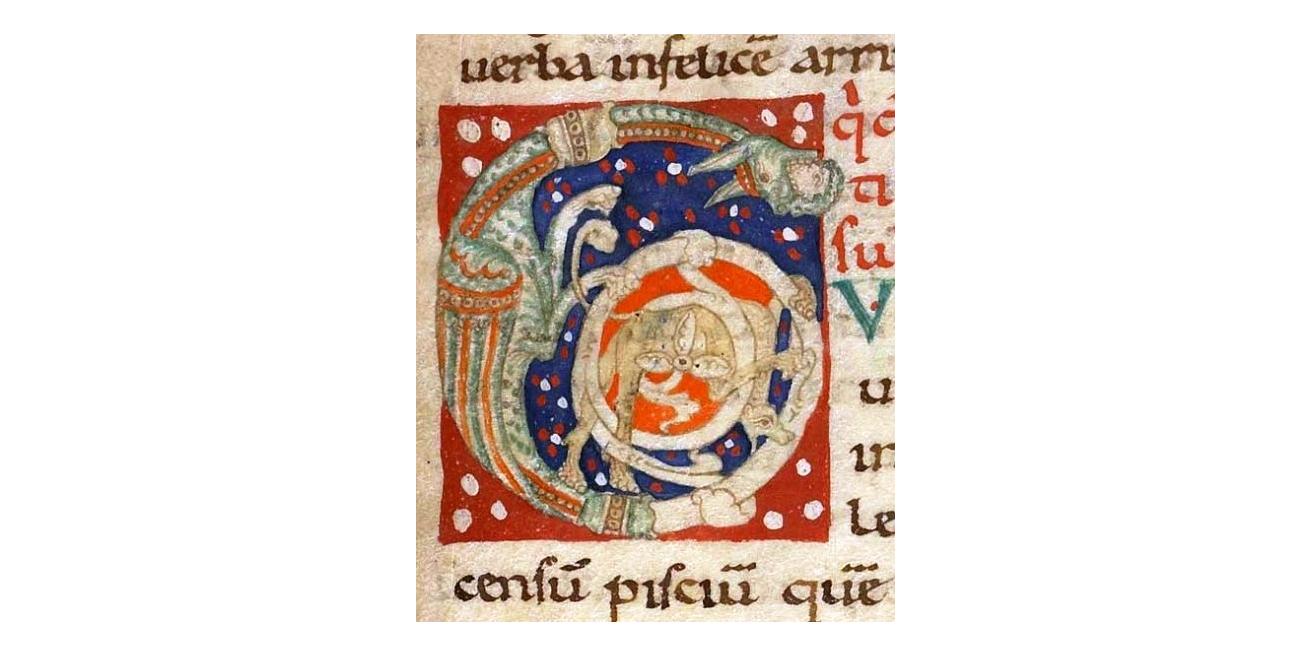 uerba infelicē arri
q̇c̄
a
su
V
u
in
le
censū pisciū quē